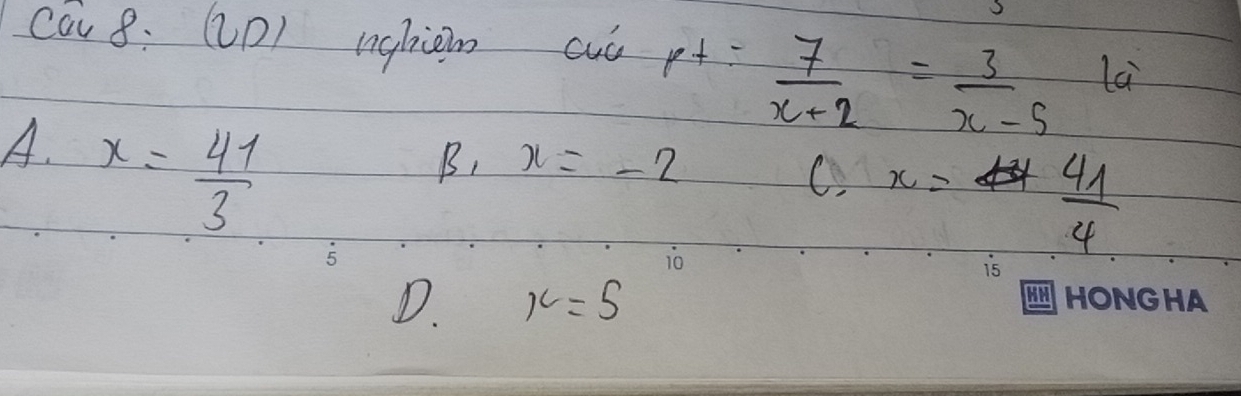 Câu 8: (VD) nghiệm của pt: 7/(x+2) = 3/(x-5) là
A. x = 41/3 B, x = -2 C, x = 41/4
5 10 15
HH HONG HA
D. x = 5